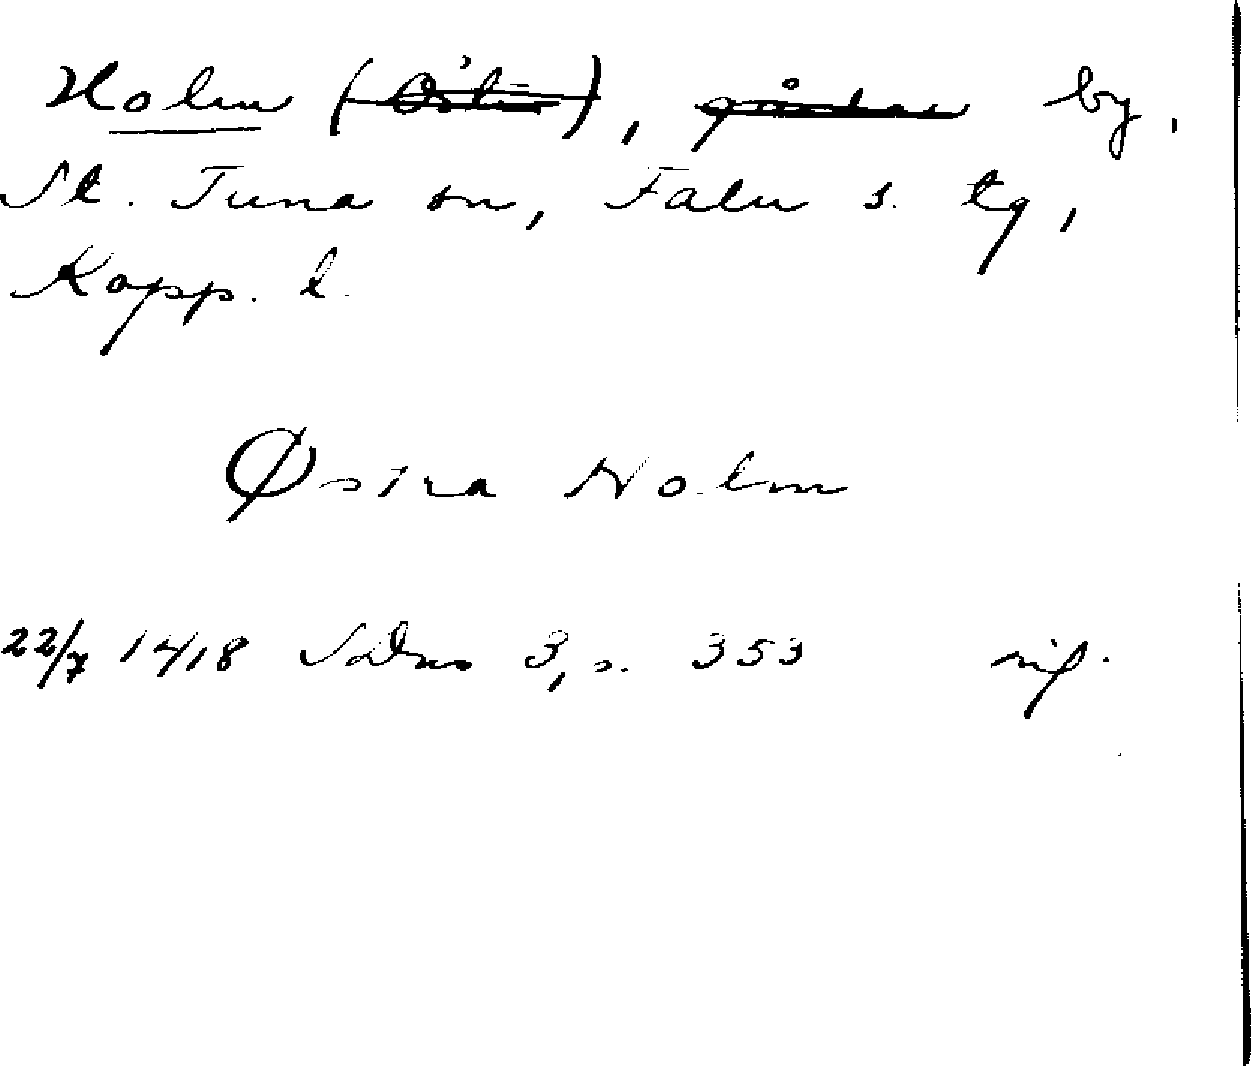 Holm (Östra), gårdar by,
St. Tuna sn, Falu s. tg,
Kopp. l.
Østra Holm
22/7 1418 SvDns 3, s. 353 sig.